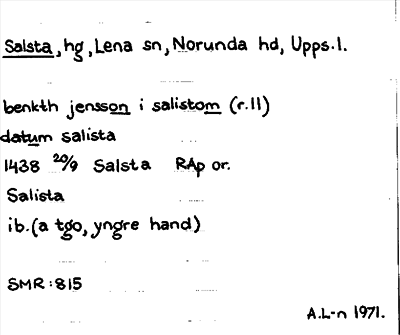 Salsta, hg, Lena sn, Norunda hd, Upps. l.
benkth jensson i salistom (r.11)
datum salista
1438 20/9 Salsta RAp or.
Salista
ib. (a tgo, yngre hand)
SMR:815
A.L-n 1971.